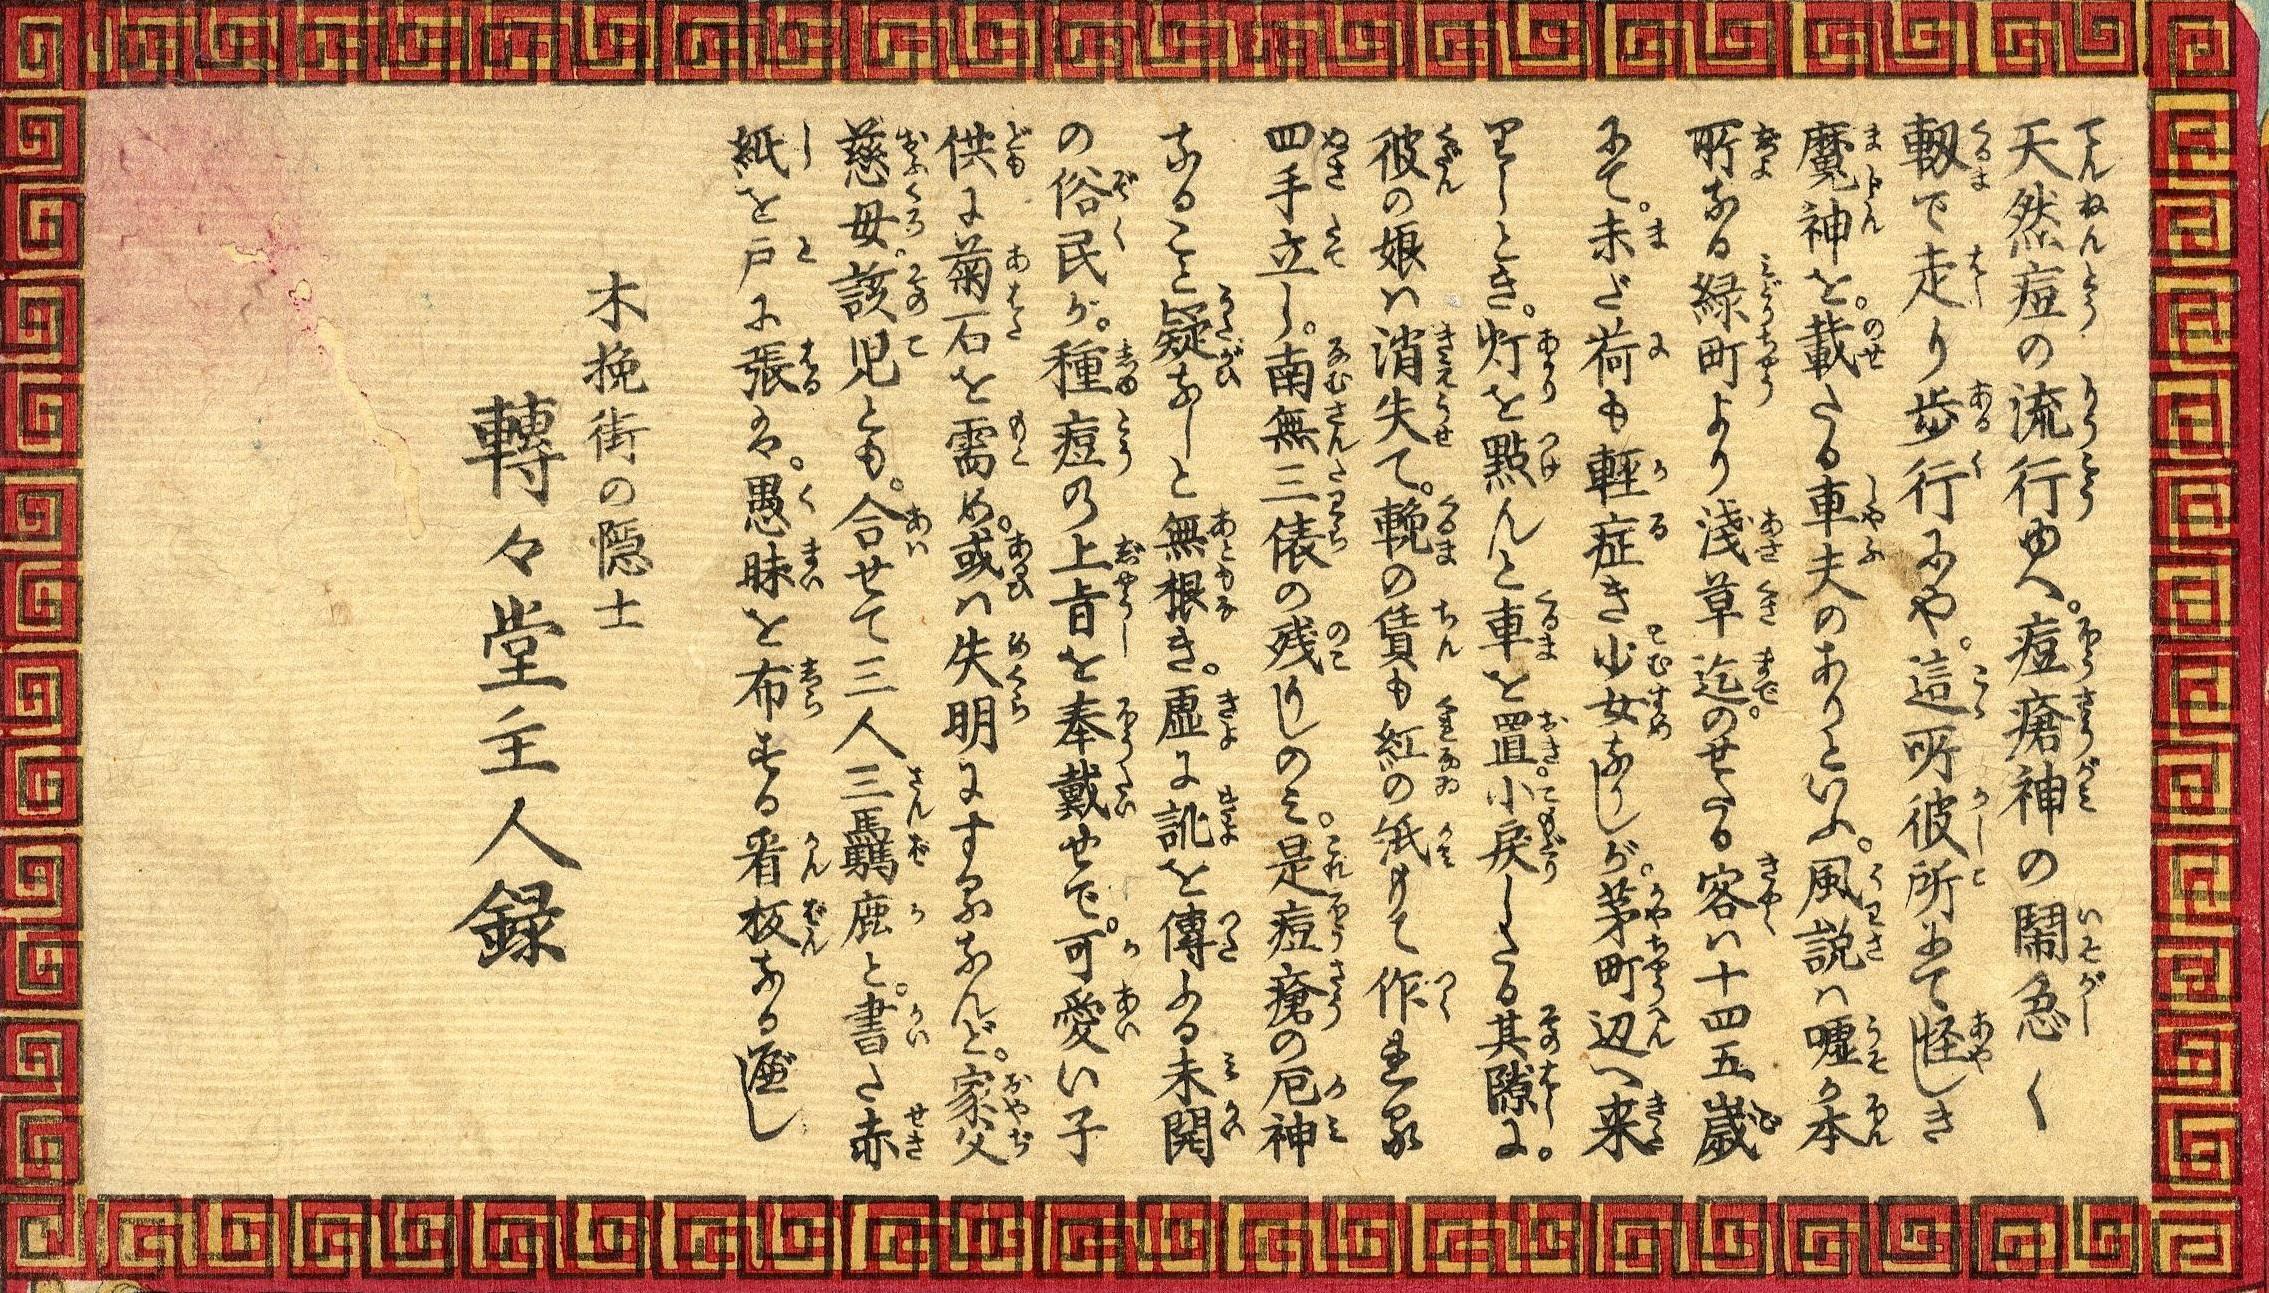 天然痘の流行ゆへ。痘瘡神の鬧急しく
軔で走り歩行にや。這所彼所にて怪しき
魔神を。載たる車夫のありといふ。風説は嘘か本
所なる緑町より浅草迄。のせたる客は十四五歳
にて。未だ荷も軽症き少女なりしが。茅町辺へ来
りしとき。灯を點んと車を置。小戻りしたる其隙に。
彼の娘は消失て。輓の賃も紅の紙もて作れる
四手立し。南無三俵の残りしのみ。是痘瘡の厄神
なること疑なしと無根き。虚に訛を傳ふる未開
の俗民が。種痘の上旨を奉戴せで。可愛い子
供に菊石を需め。或は失明にするなんど。家父
慈母。該児とも。合せて三人三馬驫鹿と。書た赤
紙を戸に張るは。愚昧を布する看板なるべし
木挽街の隠士
轉々堂主人録